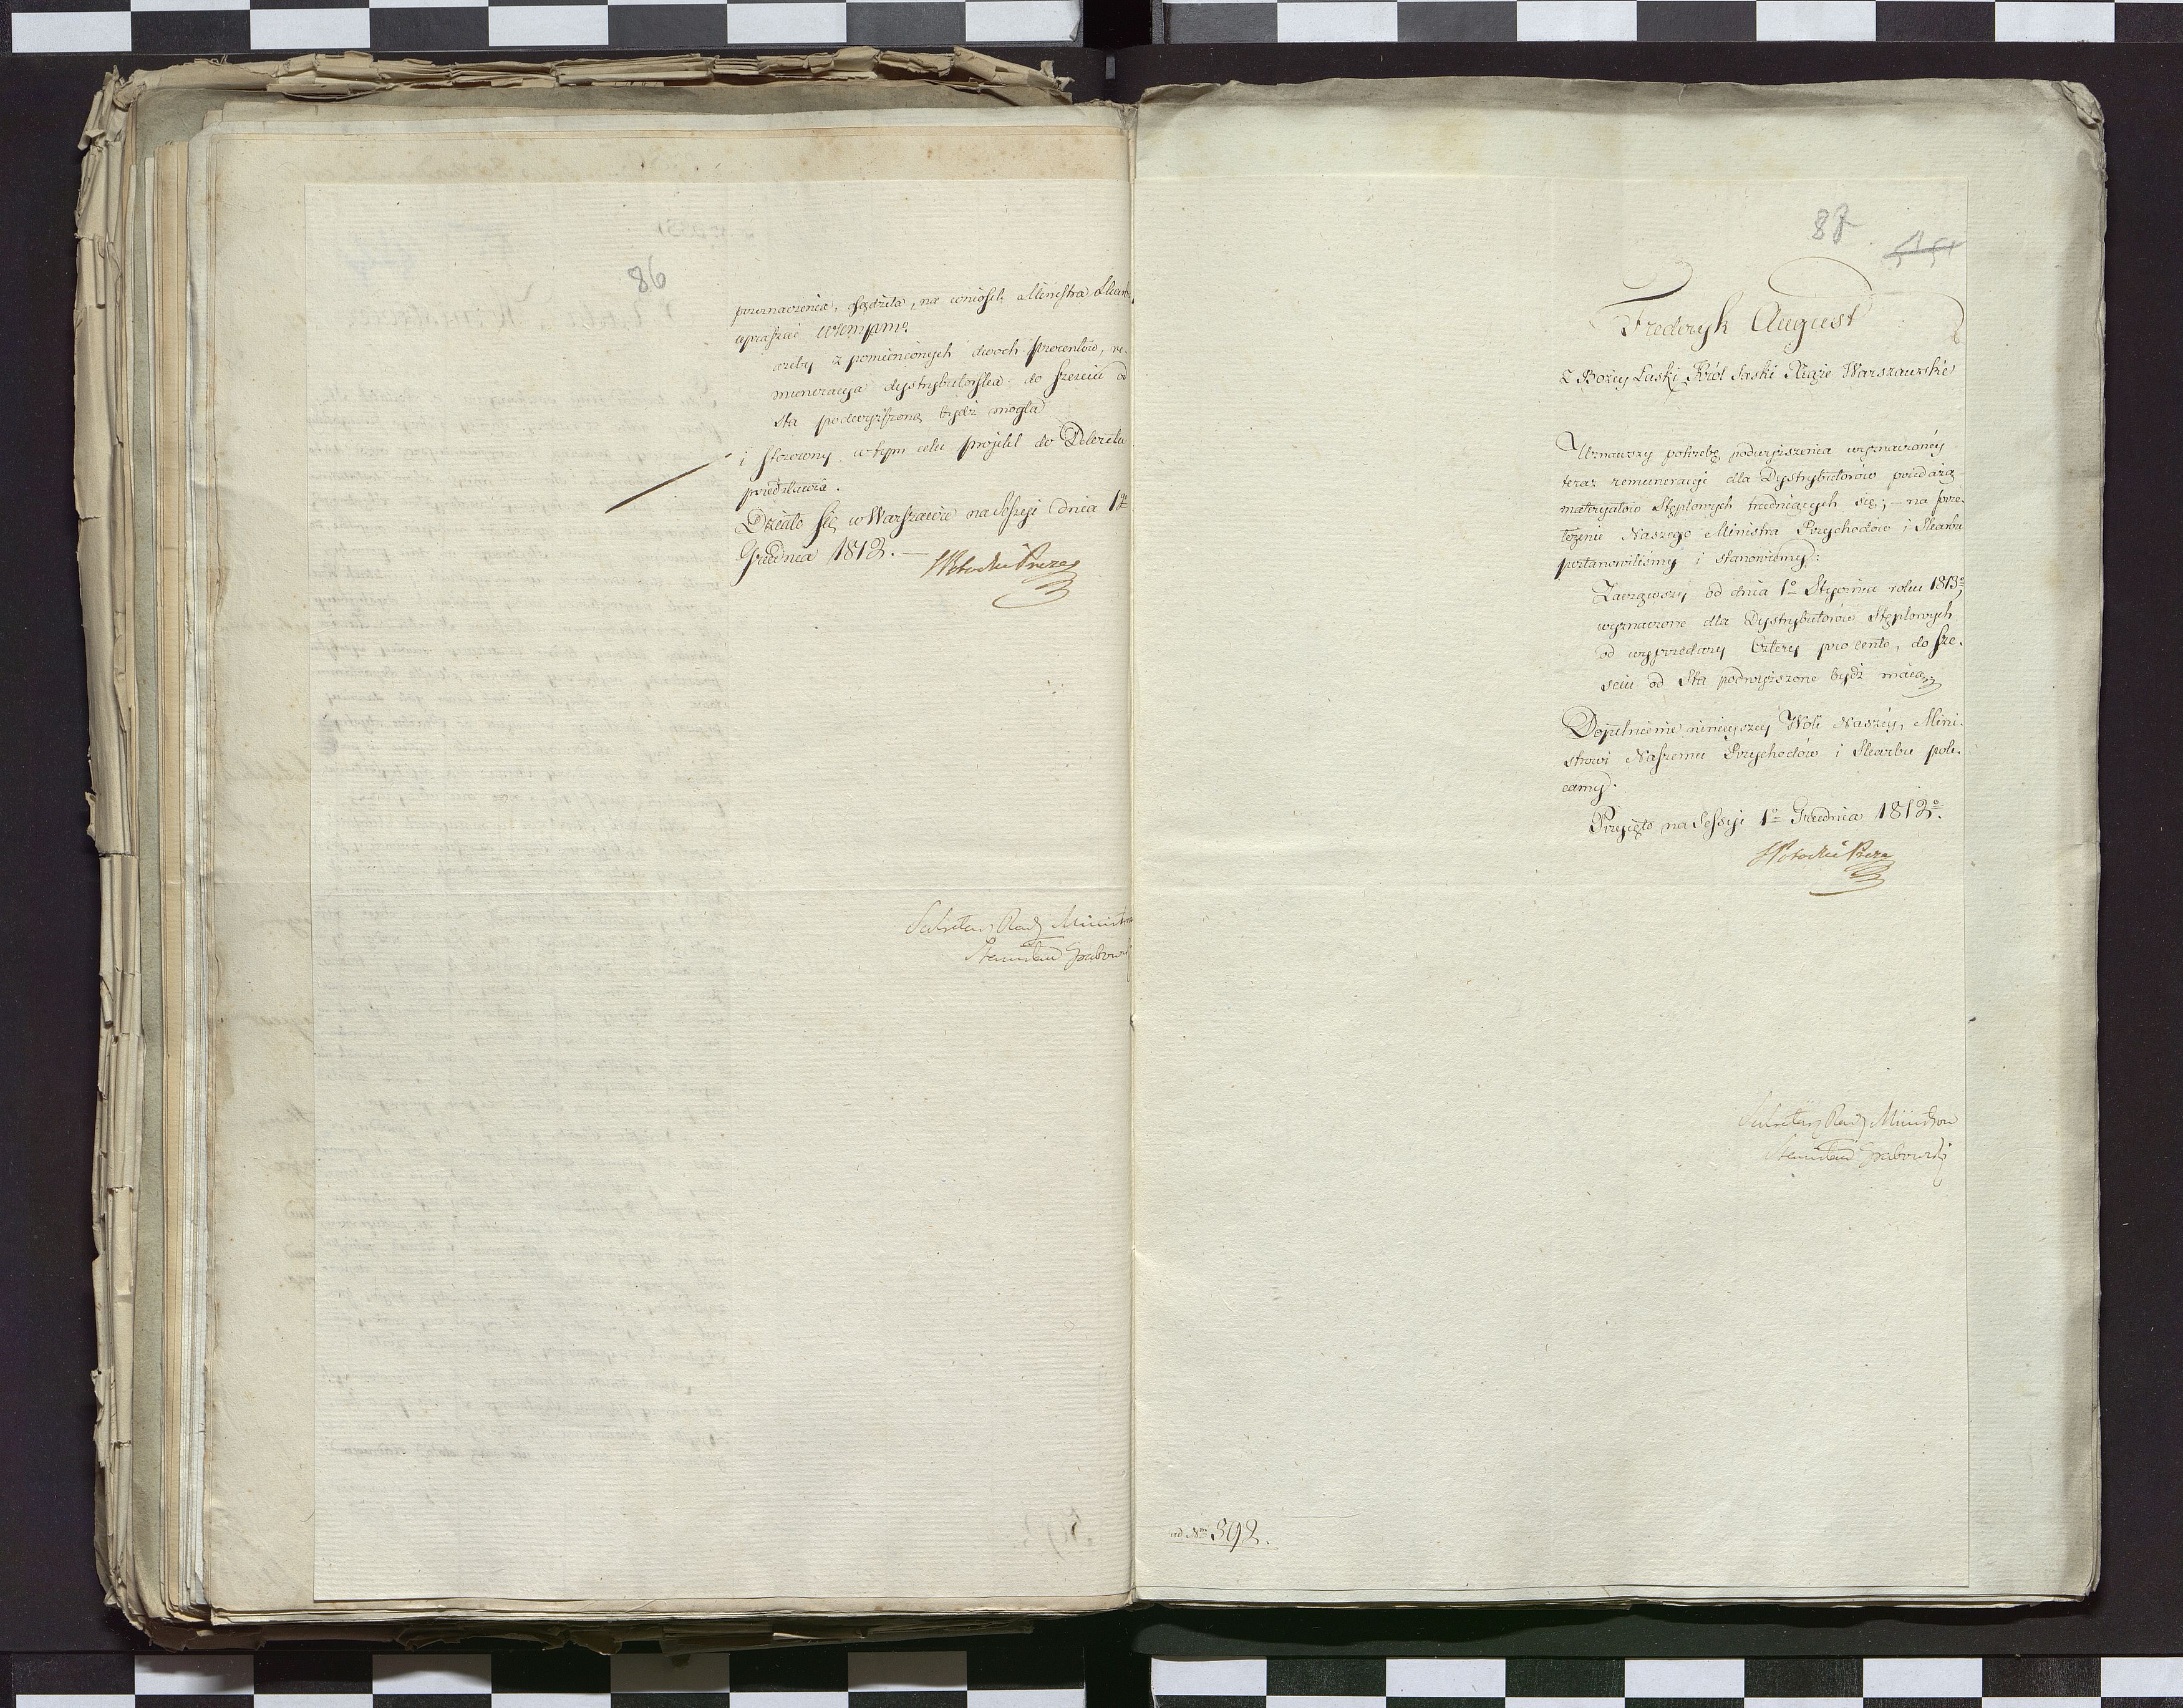 86
przeznaczenia, sądziła, na wniosek Ministra Skarbu
upraszać WKMPMo
ażeby z pomienionych dwoch procentów, re-
muneracya dystrybutorska do sześciu od
sta podwyższoną bydź mogła
i stosowny w tym celu projekt do Dekretu
przedstawia.
Działo się w Warszawie na Sessyi dnia 1go
Grudnia 1812. —
S Potocki Prezes
Sekretarz Rady Ministrow
Stanisław Grabowski
87
Frederyk August
z Bożey Łaski Król Saski Xiąże Warszawski
Uznawszy potrzebę podwyższenia wyznaczonéy
teraz remuneracyi dla Dystrybutorów przedażą
materyałow Stęplowych trudniących się; — na prze-
łożenie Naszego Ministra Przychodów i Skarbu
postanowiliśmy i stanowiemy:
Zacząwszy od dnia 1o Stycznia roku 1813o,
wyznaczone dla Dystrybutorów Stęplowych
od wyprzedaży cztery procento, do sze-
sciu od sta podwyższone bydź maią.
Dopełnienie ninieyszey Woli Naszéy, Mini-
strowi Naszemu Przychodów i Skarbu pole-
camy.
Przyięto na Sessyi 1o Grudnia 1812o.
S Potocki Prezes
Sekretarz Rady Ministrow
Stanisław Grabowski
ad Nrm 392.